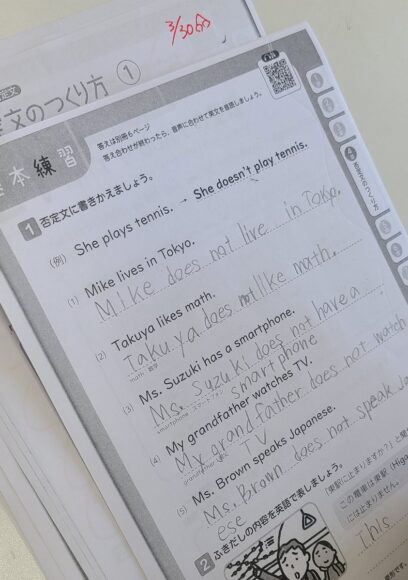 3/30
文のつくり方 ①
本練習
答えは別冊6ページ
答え合わせが終わったら、音声に合わせて英文を音読しましょう。
1 否定文に書きかえましょう。
(例) She plays tennis. → She doesn't play tennis.
(1) Mike lives in Tokyo.
Mike does not live in Tokyo.
(2) Takuya likes math.
Takuya does not like math.
math 数学
(3) Ms. Suzuki has a smartphone.
Ms. Suzuki does not have a
smartphone
smartphone スマートフォン
(4) My grandfather watches TV.
My grandfather does not watch
TV
grandfather 祖父
(5) Ms. Brown speaks Japanese.
Ms. Brown does not speak Ja
ese
2 ふきだしの内容を英語で表しましょう。
「東駅に止まりますか?」と聞
この電車は東駅 (Higa
には止まりません。
This